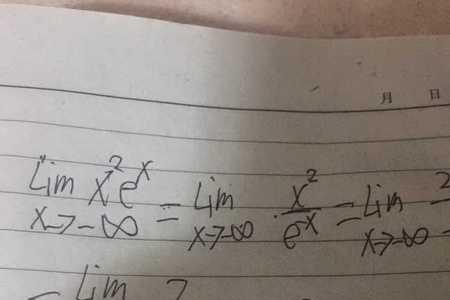 月 日
lim x→-∞ x²eˣ = lim x→-∞ x²/eˣ = lim x→-∞ 2
= lim 2